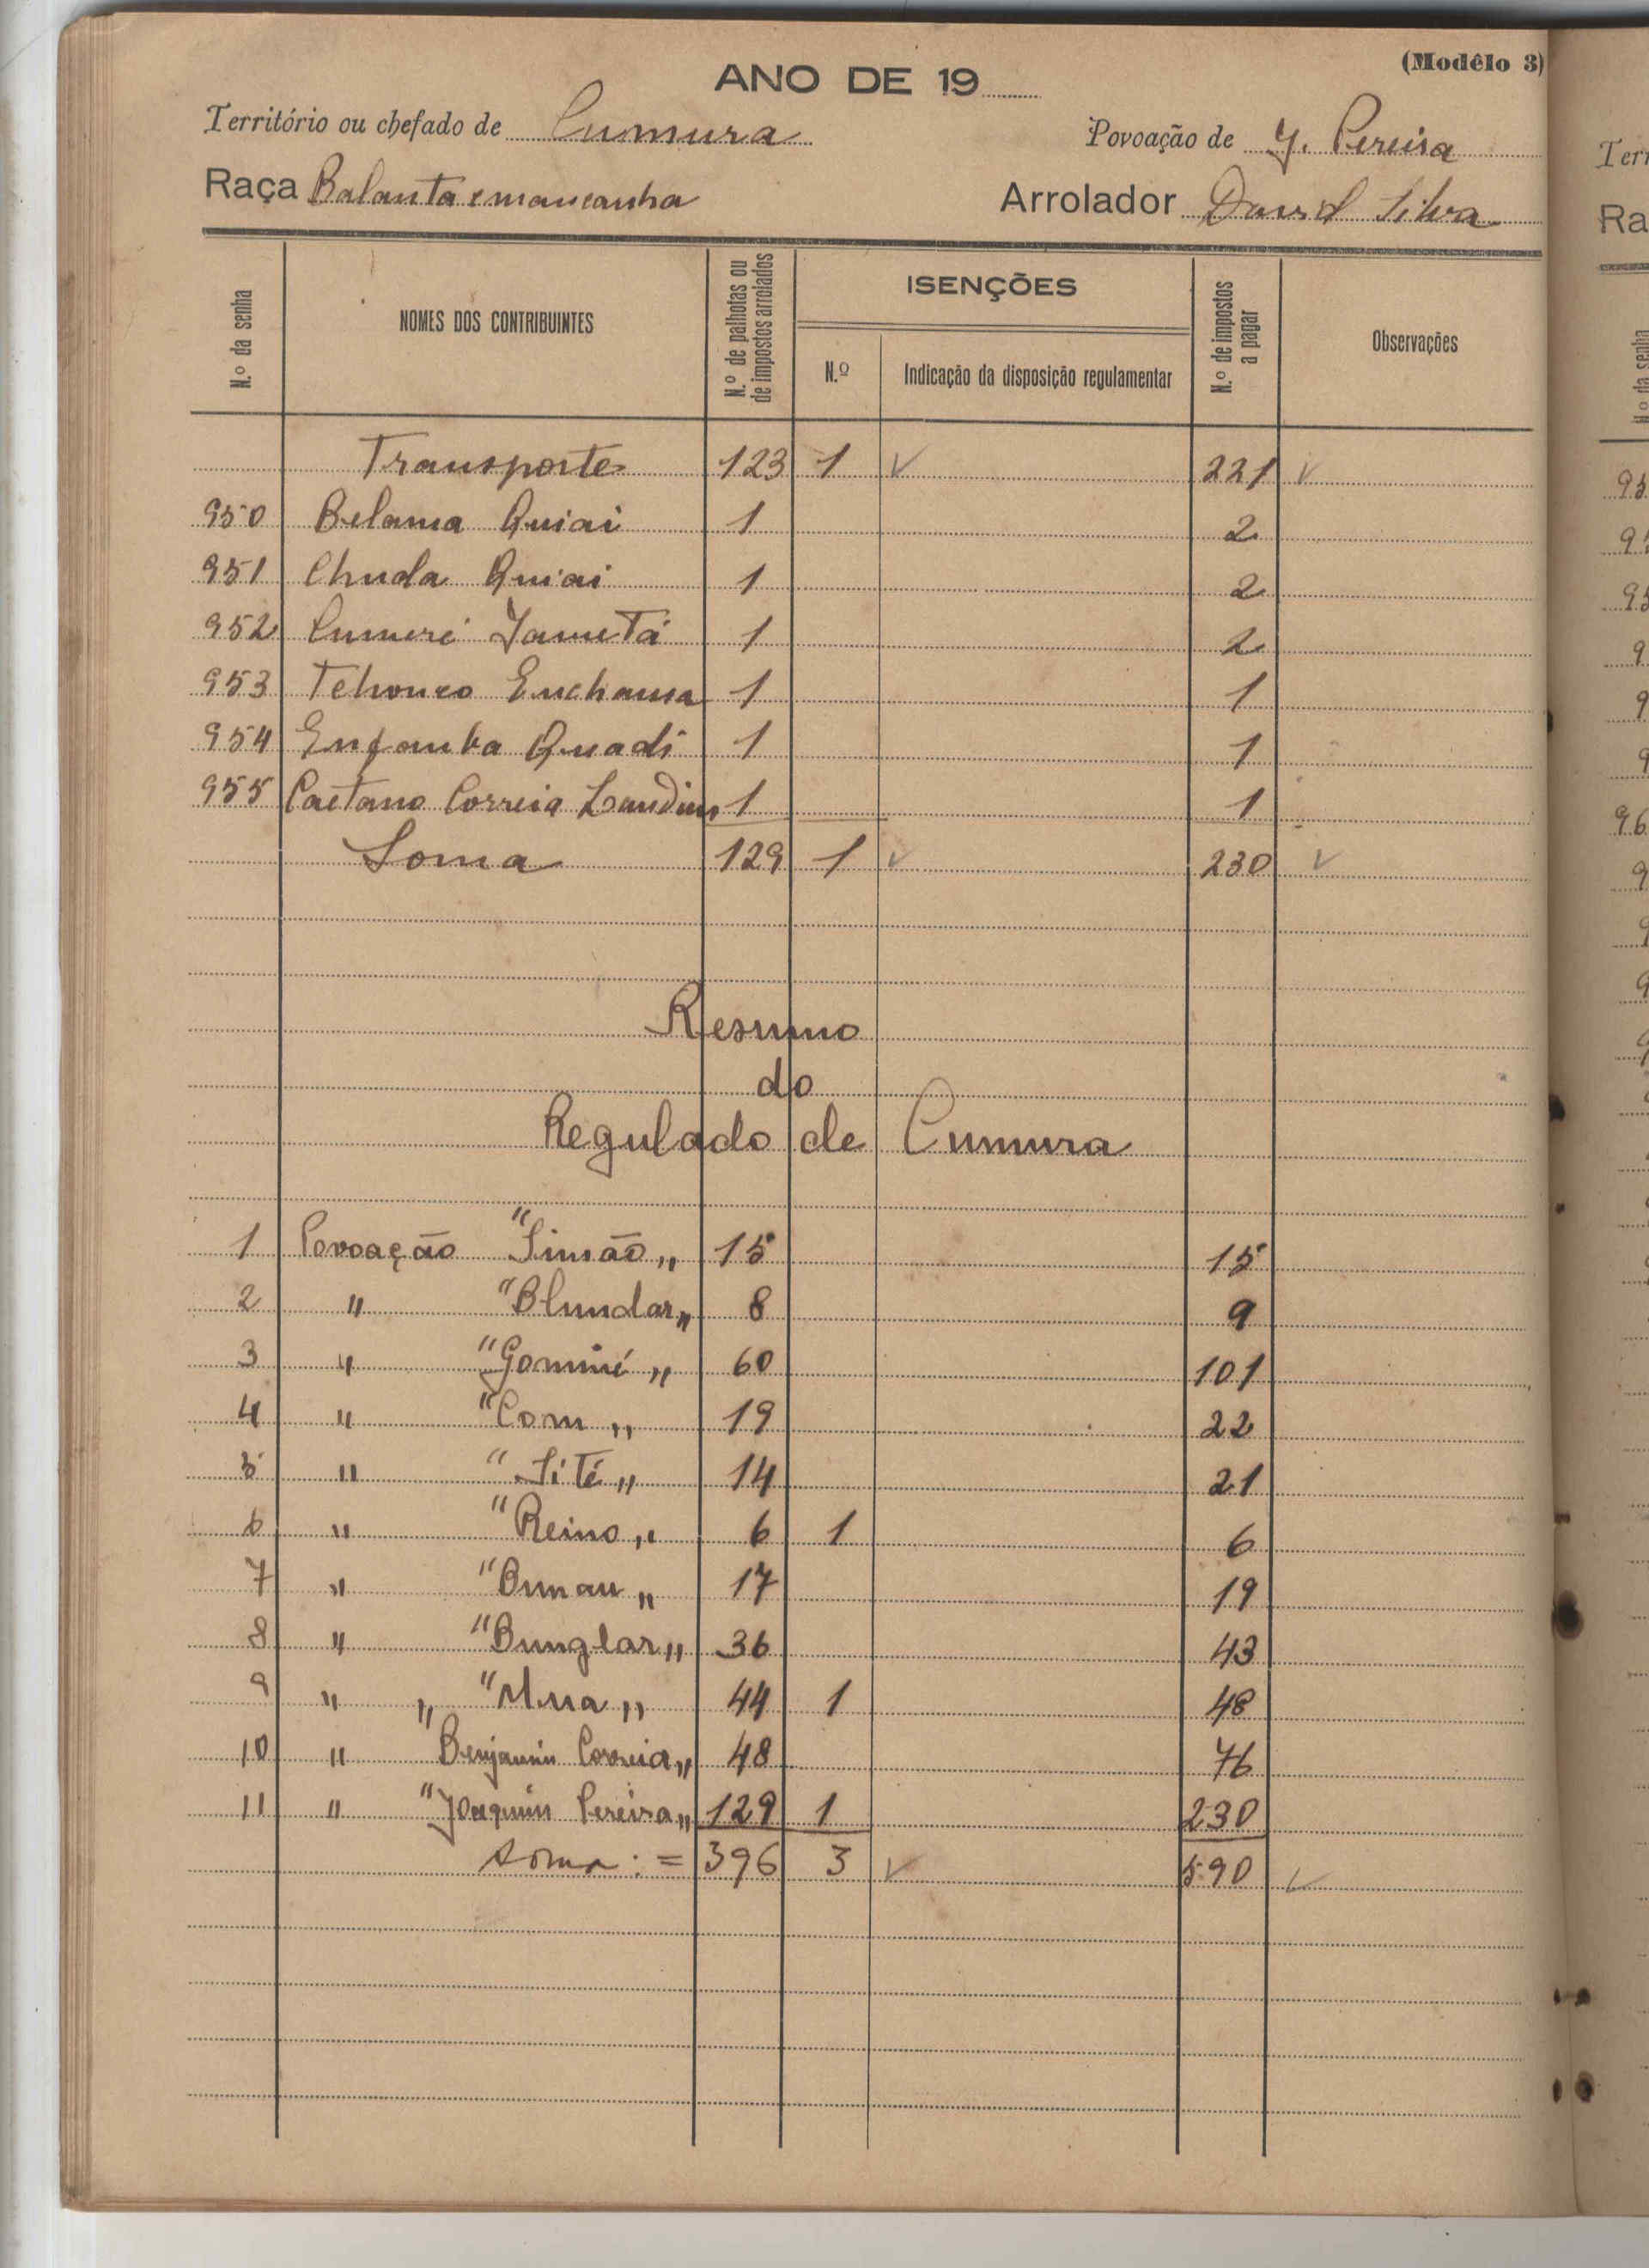 (Modêlo 3)
ANO DE 19
Território ou chefado de Cumura Povoação de J. Pereira
Raça Balanta e mancanha Arrolador David Silva
N.º da senha NOMES DOS CONTRIBUINTES N.º de palhotas ou de impostos arrolados ISENÇÕES N.º Indicação da disposição regulamentar N.º de impostos a pagar Observações
Transporte 123 1 ✓ 221 ✓
950 Belama Quiai 1 2
951 Chuda Quiai 1 2
952 Cumeré 1 2
953 1 1
954 Quadi 1 1
955 Caetano Correia Landim 1 1
Soma 129 1 ✓ 230 ✓
Resumo
do
Regulado de Cumura
1 Povoação "Simão" 15 15
2 " "Blundar" 8 9
3 " "Gominé" 60 101
4 " "Com" 19 22
5 " "Sité" 14 21
6 " "Reino" 6 1 6
7 " "Bunau" 17 19
8 " "Bunglar" 36 43
9 " " 44 1 48
10 " "Benjamin Correia" 48 76
11 " "Joaquim Pereira" 129 1 230
soma: = 396 3 ✓ 590 ✓